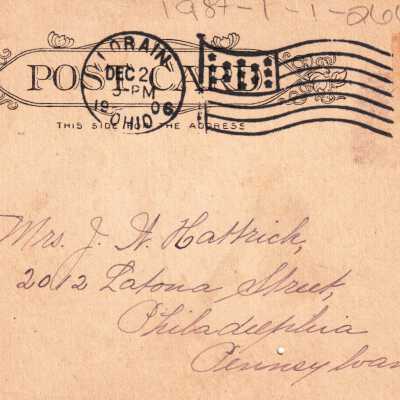 1984-1-1-260
LORAIN
POST CARD
DEC 2
5-PM
1906
OHIO
THIS SIDE FOR THE ADDRESS
Mrs. J. A. Hattrick,
2012 Latona Street,
Philadelphia
Pennsylvan